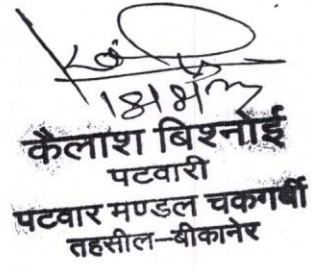 कैलाश बिश्नोई
पटवारी
पटवार मण्डल चकगर्बी
तहसील-बीकानेर